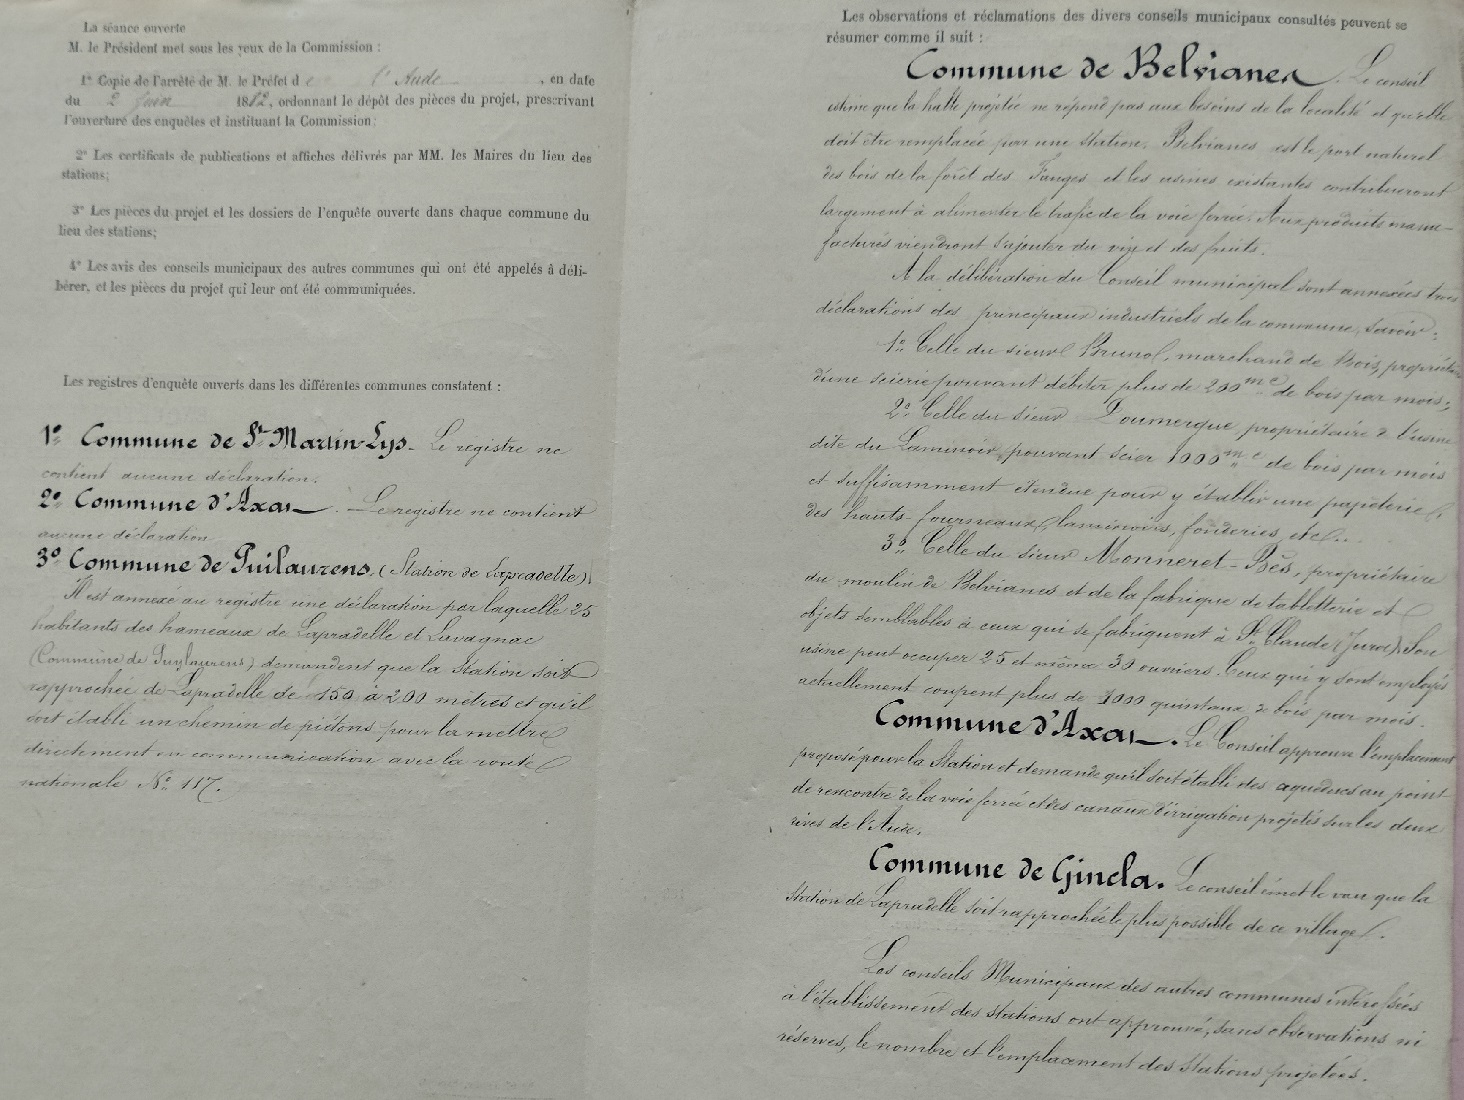 La séance ouverte
M. le Président met sous les yeux de la Commission :
1° Copie de l'arrêté de M. le Préfet de l'Aude, en date
du 2 Juin 1882, ordonnant le dépôt des pièces du projet, prescrivant
l'ouverture des enquêtes et instituant la Commission;
2° Les certificats de publications et affiches délivrés par MM. les Maires du lieu des
stations;
3° Les pièces du projet et les dossiers de l'enquête ouverte dans chaque commune du
lieu des stations;
4° Les avis des conseils municipaux des autres communes qui ont été appelés à déli-
bérer, et les pièces du projet qui leur ont été communiquées.
Les registres d'enquête ouverts dans les différentes communes constatent :
1° Commune de St Martin-Lys. Le registre ne
contient aucune déclaration.
2° Commune d'Axat. Le registre ne contient
aucune déclaration
3° Commune de Puilaurens. (Station de Lapradelle)
Il est annexé au registre une déclaration par laquelle 25
habitants des hameaux de Lapradelle et Lavagnac
(Commune de Puylaurens) demandent que la Station soit
rapprochée de Lapradelle de 150 à 200 mètres et qu'il
soit établi un chemin de piétons pour la mettre
directement en communication avec la route
nationale N° 117.
Les observations et réclamations des divers conseils municipaux consultés peuvent se
résumer comme il suit :
Commune de Belvianes. Le conseil
estime que la halte projetée ne répond pas aux besoins de la localité et qu'elle
doit être remplacée par une station. Belvianes est le port naturel
des bois de la forêt des Fanges et les usines existantes contribueront
largement à alimenter le trafic de la voie ferrée. Aux produits manu-
facturés viendront s'ajouter du vin et des fruits.
A la délibération du Conseil municipal sont annexées trois
déclarations des principaux industriels de la commune, savoir :
1° Celle du sieur Brunol, marchand de Bois, propriétaire
d'une scierie pouvant débiter plus de 200 mc de bois par mois;
2° Celle du sieur Doumergue propriétaire de l'usine
dite du Laminoir, pouvant scier 1000 mc de bois par mois
et suffisamment étendue pour y établir une papeterie,
des hauts-fourneaux, laminoirs, fonderies, etc...
3° Celle du sieur Monneret-Bès, propriétaire
du moulin de Belvianes et de la fabrique de tabletterie et
objets semblables à ceux qui se fabriquent à St Claude (Jura). Son
usine peut occuper 25 et même 30 ouvriers. Ceux qui y sont employés
actuellement coupent plus de 1000 quintaux de bois par mois.
Commune d'Axat. Le Conseil approuve l'emplacement
proposé pour la Station et demande qu'il soit établi des aqueducs au point
de rencontre de la voie ferrée et des canaux d'irrigation projetés sur les deux
rives de l'Aude.
Commune de Gincla. Le conseil émet le vœu que la
Station de Lapradelle soit rapprochée le plus possible de ce village.
Les conseils Municipaux des autres communes intéressées
à l'établissement des stations ont approuvé, sans observations ni
réserves, le nombre et l'emplacement des Stations projetées.